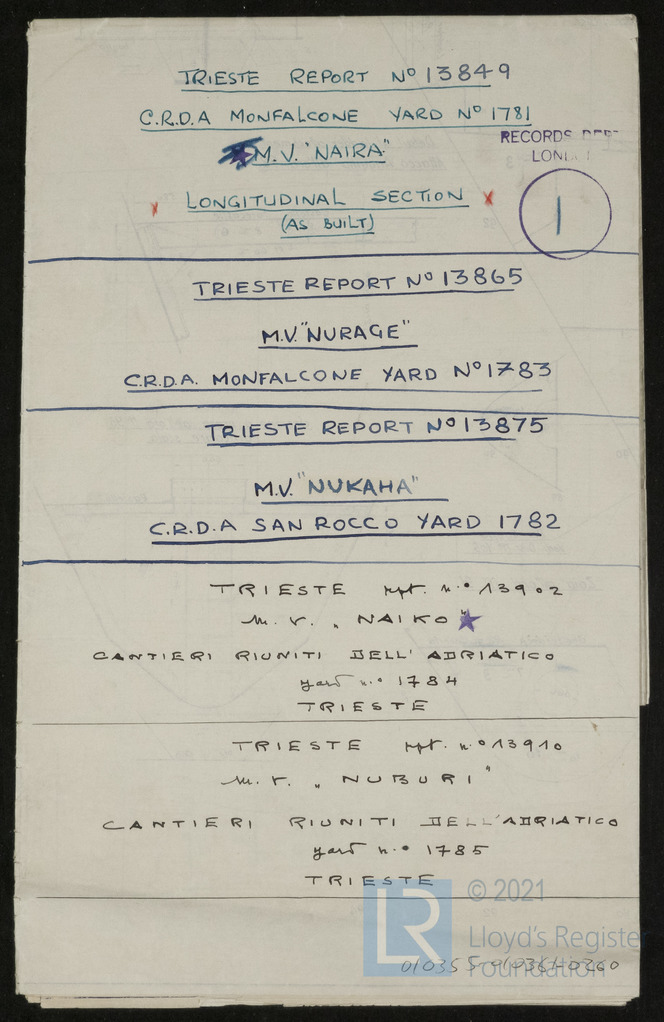 TRIESTE REPORT Nº 13849
C.R.D.A MONFALCONE YARD Nº 1781
M.V. "NAIRA"
RECORDS DEPT
LOND
x LONGITUDINAL SECTION x
(AS BUILT)
1
TRIESTE REPORT Nº 13865
M.V. "NURAGE"
C.R.D.A. MONFALCONE YARD Nº 1783
TRIESTE REPORT Nº 13875
M.V. "NUKAHA"
C.R.D.A SAN ROCCO YARD 1782
TRIESTE rpt. n.º 13902
m. v. „ NAIKO "
CANTIERI RIUNITI DELL' ADRIATICO
yard n.º 1784
TRIESTE
TRIESTE rpt. n.º 13910
m. v. „ NUBURI "
CANTIERI RIUNITI DELL'ADRIATICO
yard n.º 1785
TRIESTE
LR
© 2021
Lloyd's Register
Foundation